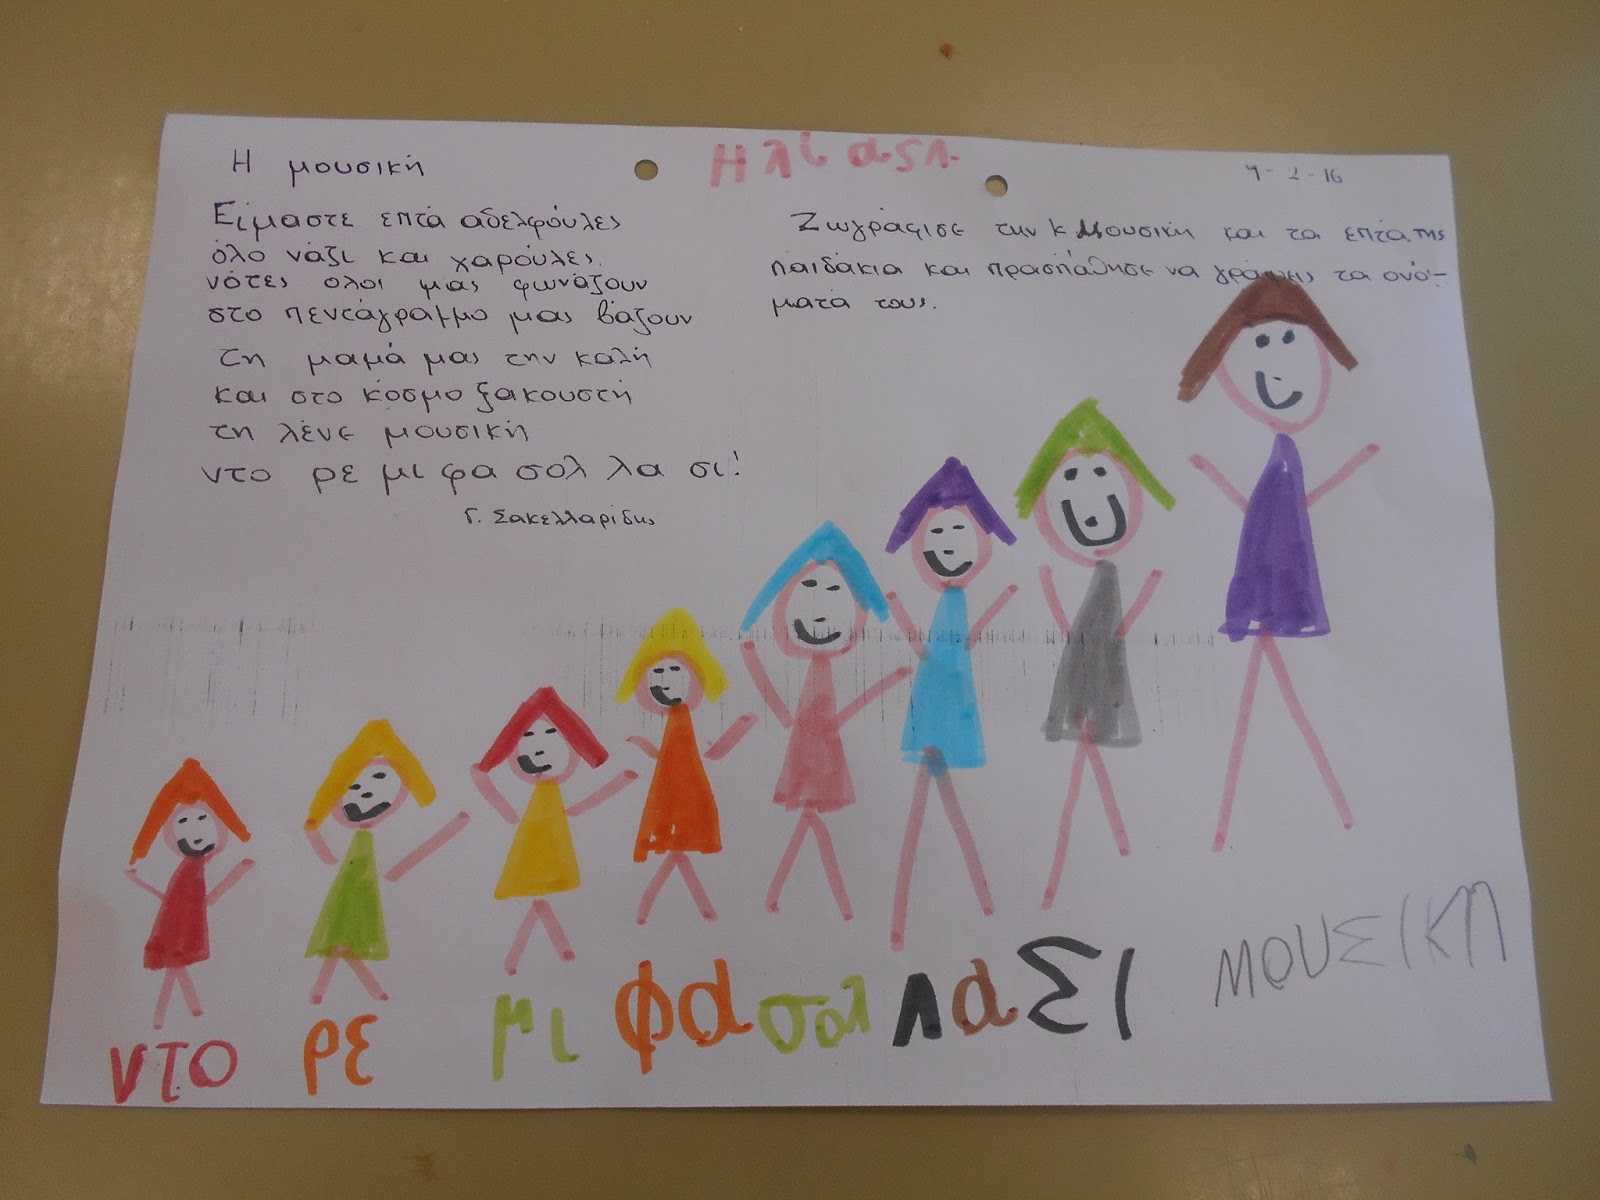 Η μουσική
Ηλίας Λ.
9-2-16
Είμαστε επτά αδελφούλες
όλο νάζι και χαρούλες.
νότες όλοι μας φωνάζουν
στο πεντάγραμμο μας βάζουν
τη μαμά μας την καλή
και στο κόσμο ξακουστή
τη λένε μουσική
ντο ρε μι φα σολ λα σι!
Γ. Σακελλαρίδης
Ζωγράφισε την κ Μουσική και τα επτά της
παιδάκια και προσπάθησε να γράψεις τα ονό-
ματά τους.
ντο ρε μι φα σολ λα Σι ΜΟΥΣΙΚΗ